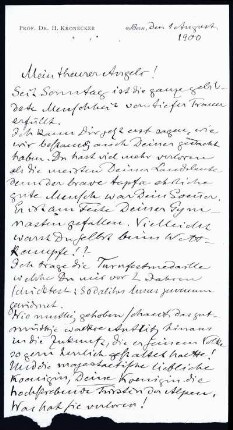 PROF. DR. H. KRONECKER
Bern, den 1 August
1900
Mein theurer Angelo!
Seit Sonntag ist die ganze gebil-
dete Menschheit von tiefer Trauer
erfüllt.
Ich kann Dir jetzt erst sagen, wie
wir besonders auch Deiner gedacht
haben. Du hast viel mehr verloren
als die meisten Deiner Landsleute
denn der brave tapfre ehrliche
gute Mensch war Dein
Er ist am Feste Deiner Tym-
nasten gefallen. Vielleicht
warst Du selbst beim Wett-
kampfe!?
Ich trage die Turnfestmedaille
welche Du mir vor
schicktest
gewidmet.
Wie muthig gehoben schaut das gut-
müthige wackre Antlitz hinaus
in die Zukunft, die er seinem Volke
so gern herrlich gestaltet hätte!
Und die majestätische liebliche
Koenigin, Deine Koenigin die
hochstrebende Fürstin der Alpen,
Was hat sie verloren!